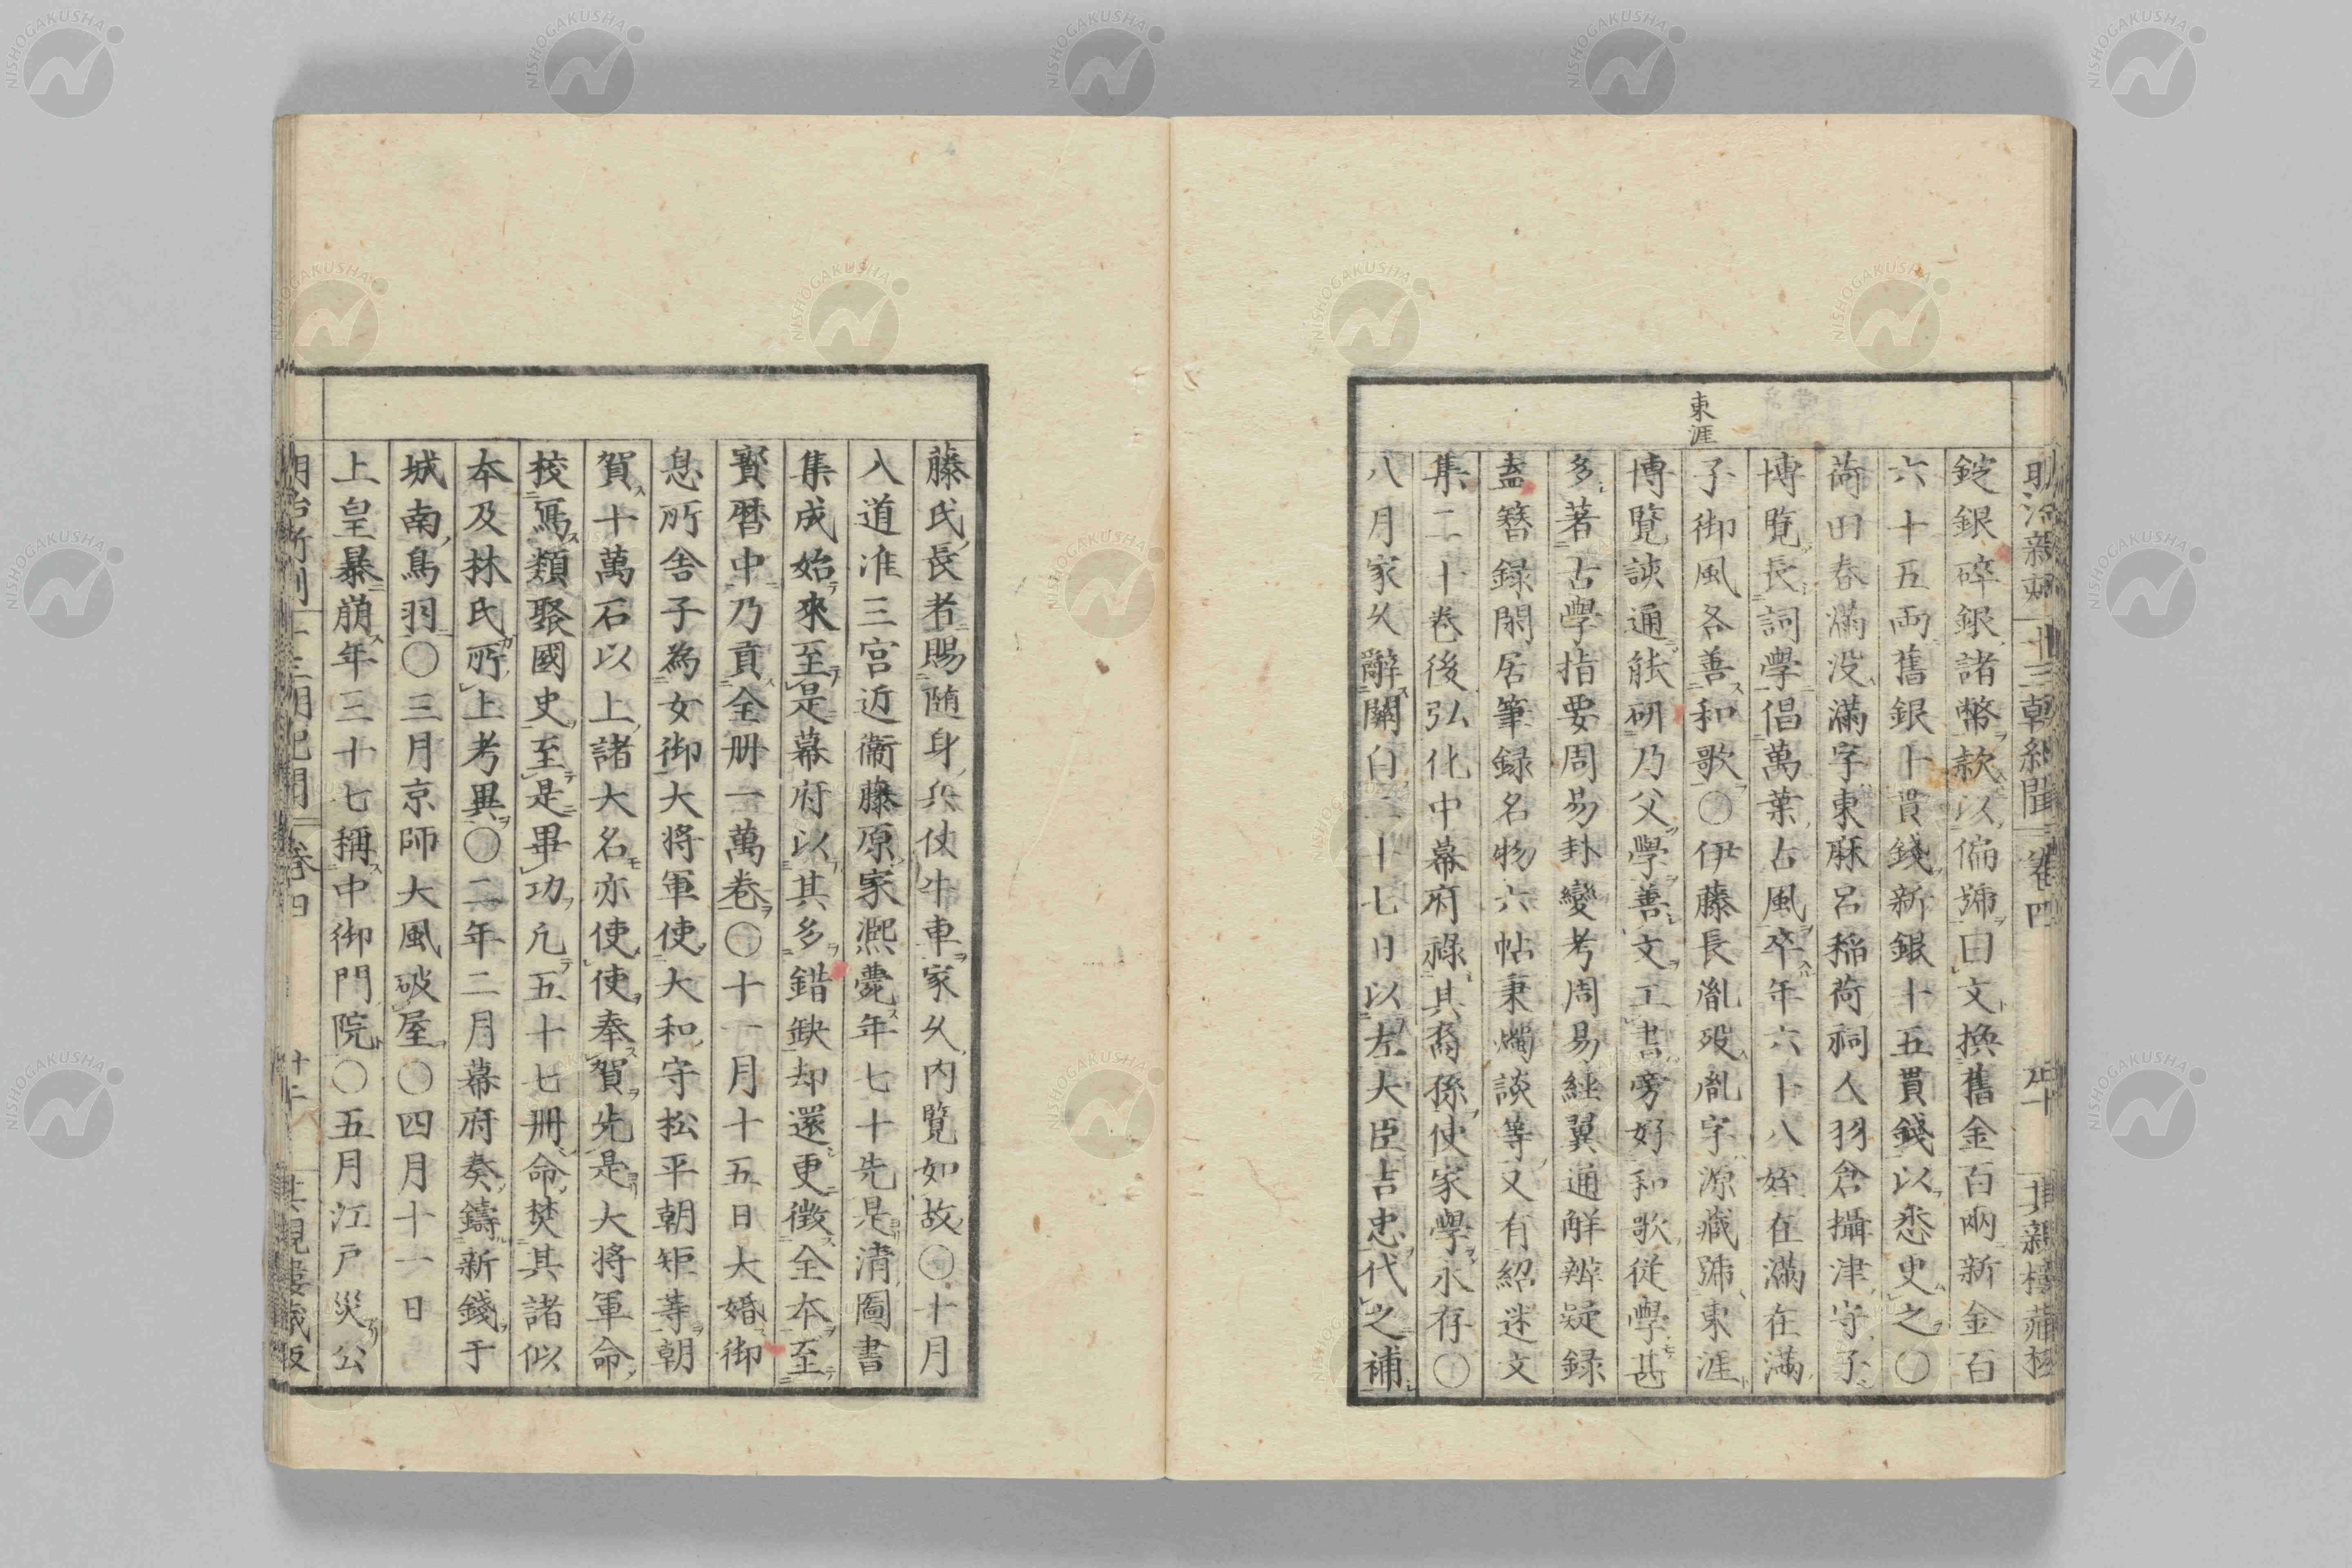 東涯
錠銀碎銀諸幣款以偏號曰文換舊金百兩新金百
六十五兩舊銀十貫錢新銀十五貫錢以悉史之〇
荷田春滿没滿字東麻呂稲荷祠人羽倉攝津守子
博覧長詞學倡萬葉古風卒年六十八姪在滿在滿
子御風各善和歌〇伊藤長胤歿胤字源藏號東涯
博覧諛通能研乃父學善文工書旁好和歌從學甚
多著古學指要周易卦變考周易經翼通解辨疑録
盍簪録閑居筆録名物六帖秉燭談等又有紹述文
集二十卷後弘化中幕府祿其裔孫使家學永存〇
八月家久辭關白二十七日以左大臣吉忠代之補
藤氏長者賜随身兵仗牛車家久内覽如故〇十月
入道准三宮近衞藤原家熈薨年七十先是清圖書
集成始來至是幕府以其多錯缺却還更徴全本至
寳暦中乃貢全册一萬卷〇十一月十五日大婚御
息所舎子為女御大将軍使大和守松平朝矩等朝
賀十萬石以上諸大名亦使使奉賀先是大将軍命
校寫類聚國史至是畢功凢五十七册命焚其諸似
本及林氏所上考異〇二年二月幕府奏鑄新錢于
城南鳥羽〇三月京師大風破屋〇四月十一日
上皇暴崩年三十七稱中御門院〇五月江戸災公